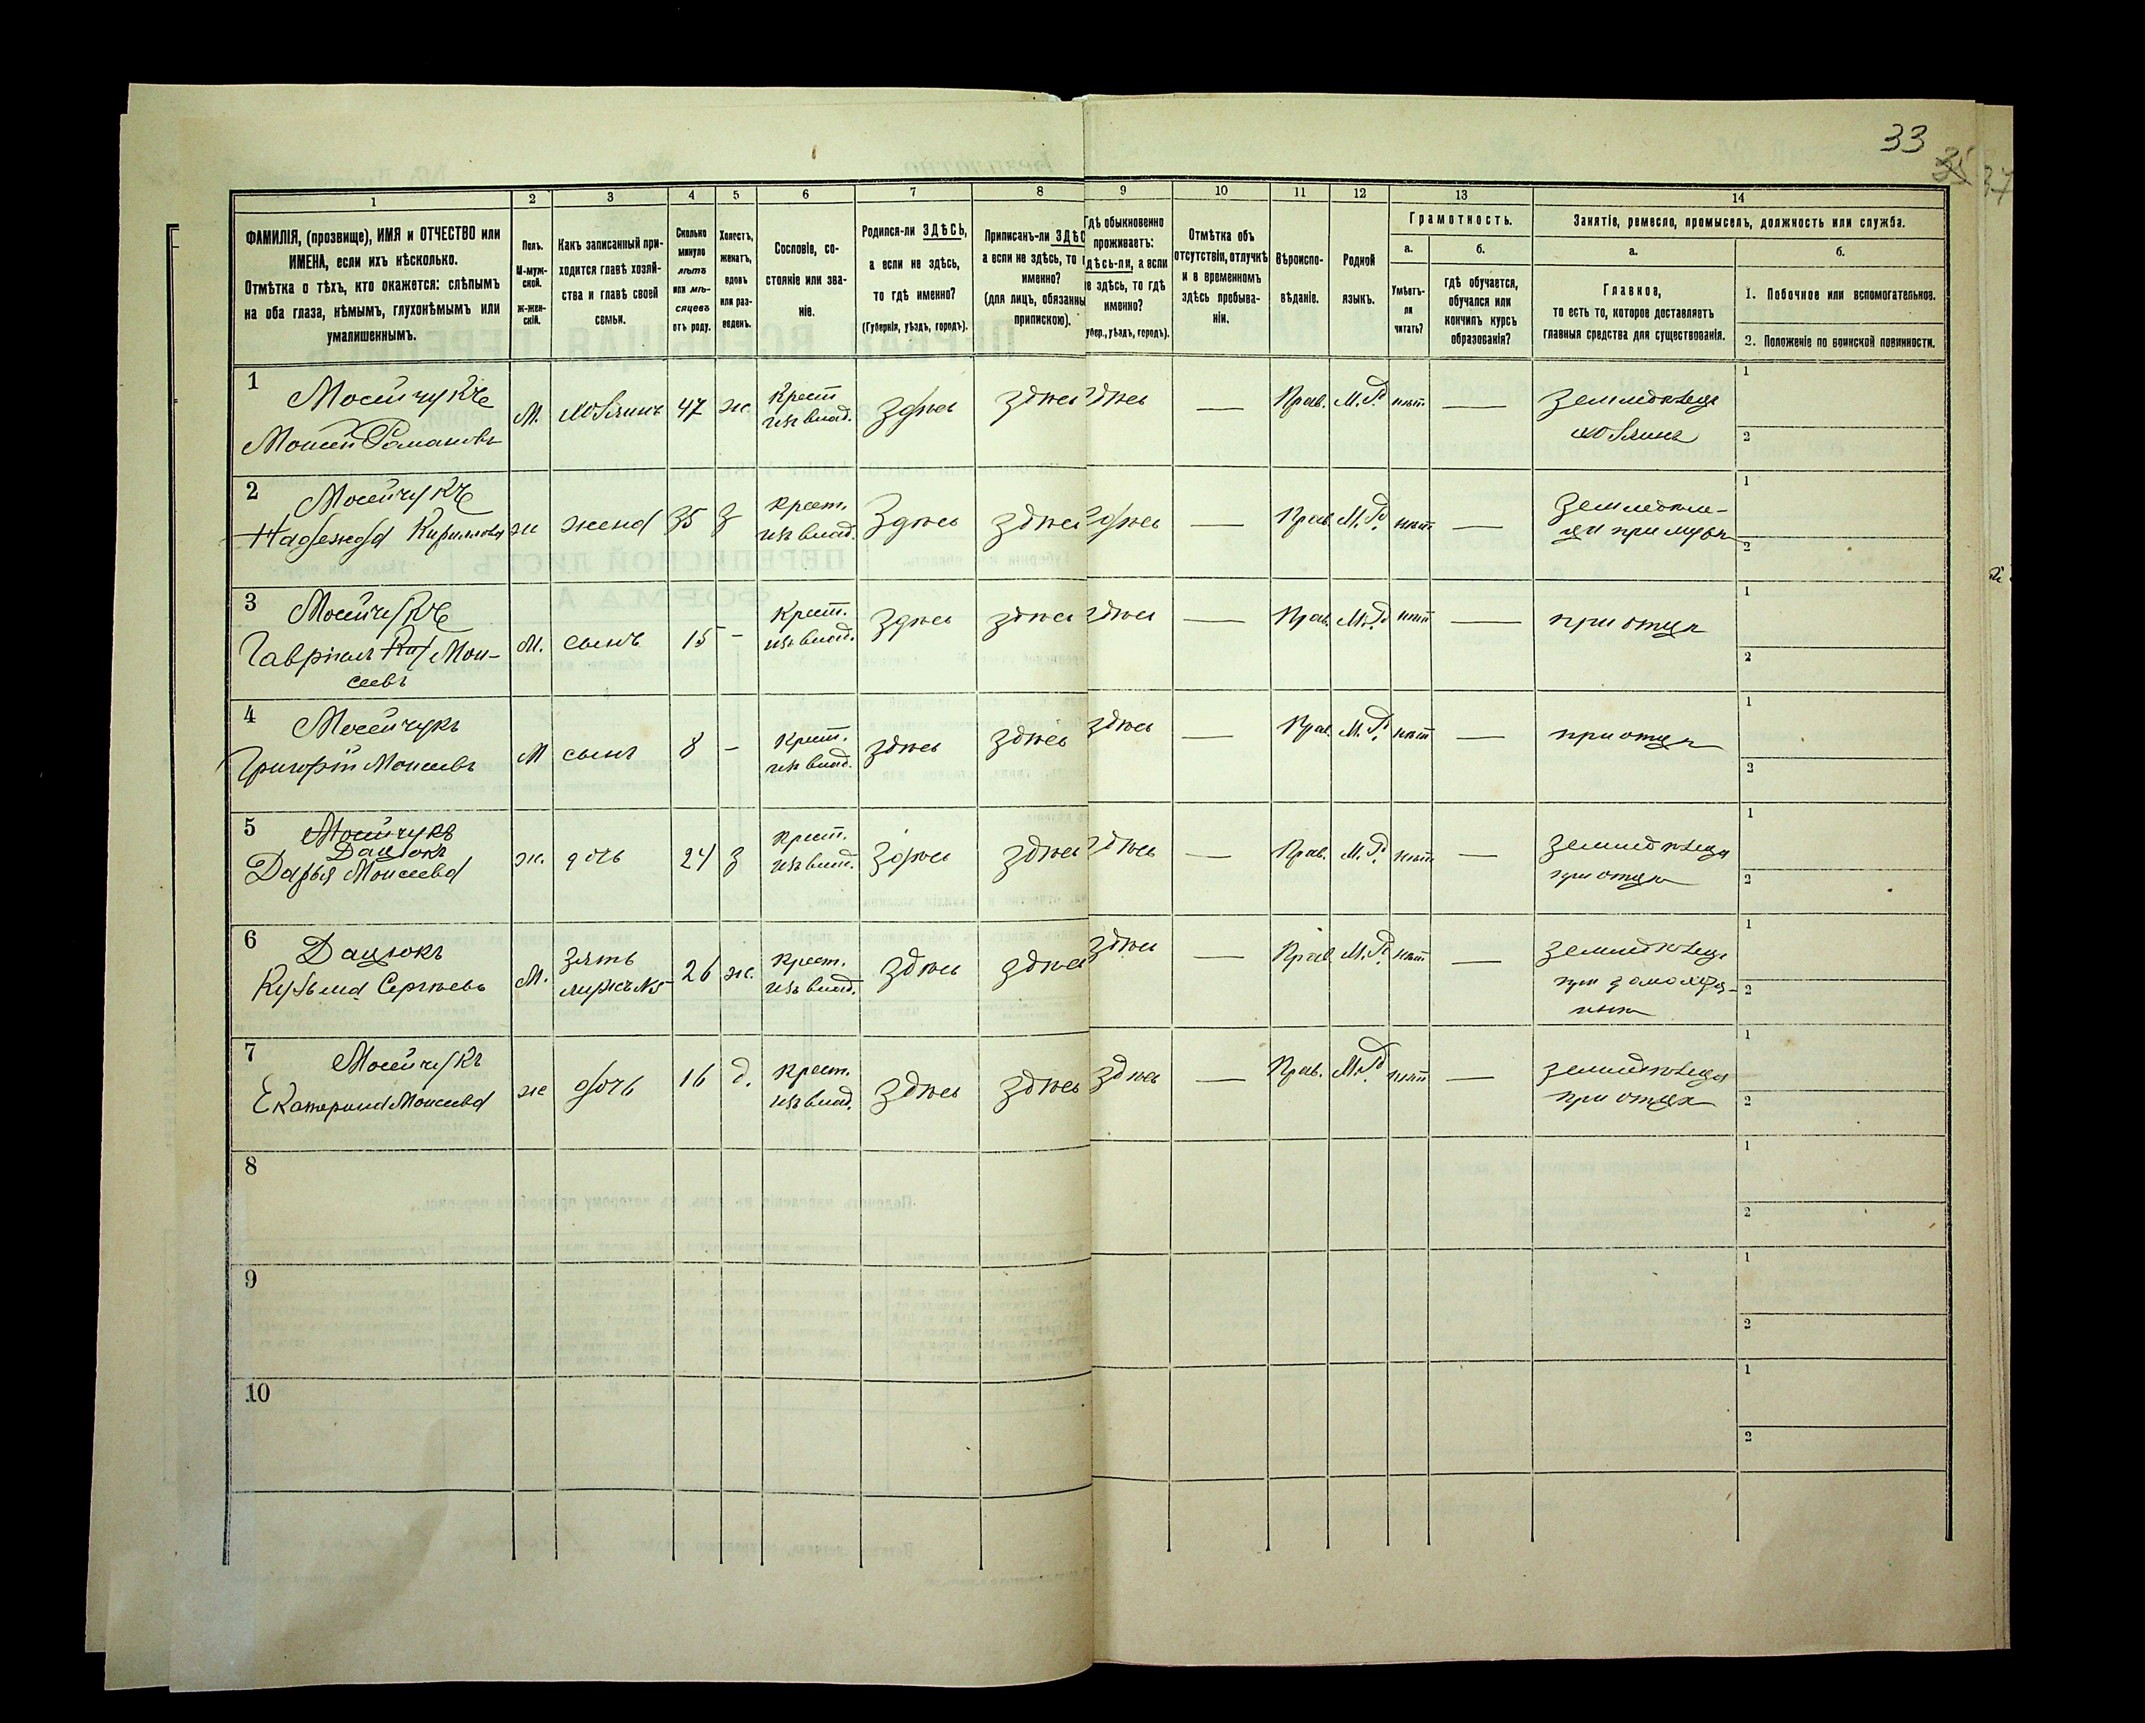 33
35 37
1 2 3 4 5 6 7 8 9 10 11 12 13 14
ФАМИЛІЯ, (прозвище), ИМЯ и ОТЧЕСТВО или
ИМЕНА, если ихъ нѣсколько.
Отмѣтка о тѣхъ, кто окажется: слѣпымъ
на оба глаза, нѣмымъ, глухонѣмымъ или
умалишеннымъ.
Полъ.
М-муж-
ской.
Ж-жен-
скій.
Какъ записанный при-
ходится главѣ хозяй-
ства и главѣ своей
семьи.
Сколько
минуло
лѣтъ
или мѣ-
сяцевъ
отъ роду.
Холостъ,
женатъ,
вдовъ
или раз-
веденъ.
Сословіе, со-
стояніе или зва-
ніе.
Родился-ли ЗДѢСЬ,
а если не здѣсь,
то гдѣ именно?
(Губернія, уѣздъ, городъ).
Приписанъ-ли ЗДѢС
а если не здѣсь, то
именно?
(для лицъ, обязанны
припискою).
Гдѣ обыкновенно
проживаетъ:
дѣсь-ли, а если
е здѣсь, то гдѣ
именно?
убер., уѣздъ, городъ).
Отмѣтка объ
отсутствіи, отлучкѣ
и о временномъ
здѣсь пребыва-
ніи.
Вѣроиспо-
вѣданіе.
Родной
языкъ.
Грамотность.
а.
Умѣетъ-
ли
читать?
б.
Гдѣ обучается,
обучался или
кончилъ курсъ
образованія?
Занятіе, ремесло, промыселъ, должность или служба.
а.
Главное,
то есть то, которое доставляетъ
главныя средства для существованія.
б.
1. Побочное или вспомогательное.
2. Положеніе по воинской повинности.
1 Мосейчукъ
Моисей Романовъ
М. хозяинъ 47 ж Крест
изъ влад. здѣсь здѣсь здѣсь — Прав. М. Р. нѣт — земледѣлецъ
хозяинъ
1
2
2 Мосейчукъ
Надежда Кирилова
ж жена 35 з Крест.
изъ влад. Здѣсь здѣсь здѣсь — Прав М. Р. нѣт —
при мужѣ
1
2
3 Мосейчукъ
Гавріилъ Мои-
сеевъ
М. сынъ 15 – Крест.
изъ влад. здѣсь здѣсь здѣсь — Прав. М. Р. нѣт — при отцѣ
1
2
4 Мосейчукъ
Григорій Моисеевъ
М сынъ 8 – Крест.
изъ влад. здѣсь здѣсь здѣсь — Прав. М. Р. нѣт — при отцѣ
1
2
5 Мосейчукъ
Дацюкъ
Дарья Моисеева
ж. дочь 24 з Крест.
изъ влад. здѣсь здѣсь здѣсь — Прав. М. Р. нѣт — земледѣлецъ
при отцѣ
1
2
6 Дацюкъ
Кузьма Сергѣевъ
М. зять
мужъ №5 26 ж. Крест.
изъ влад. здѣсь здѣсь здѣсь — Прав М. Р. нѣт — земледѣлецъ
при домохозя-
инѣ
1
2
7 Мосейчукъ
Екатерина Моисеева
ж дочь 16 д. Крест.
изъ влад. здѣсь здѣсь здѣсь — Прав. М. Р. нѣт — земледѣлецъ
при отцѣ
1
2
8
1
2
9
1
2
10
1
2